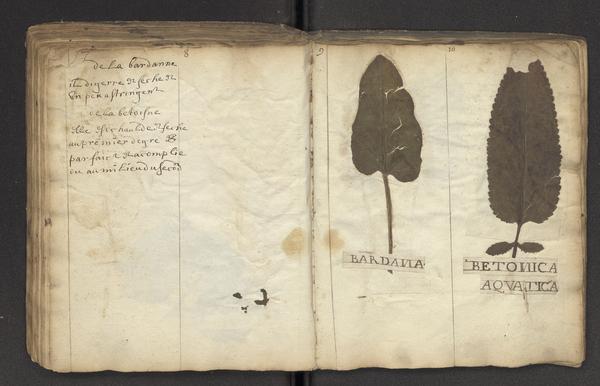 8
de la bardanne
il digerre et seche et
un peu astringent
de la betoisne
elle est chaulde et seche
au premier degre
parfaict et acomplie
ou au milieu du secōd
9
BARDANA
10
BETONICA
AQVATICA